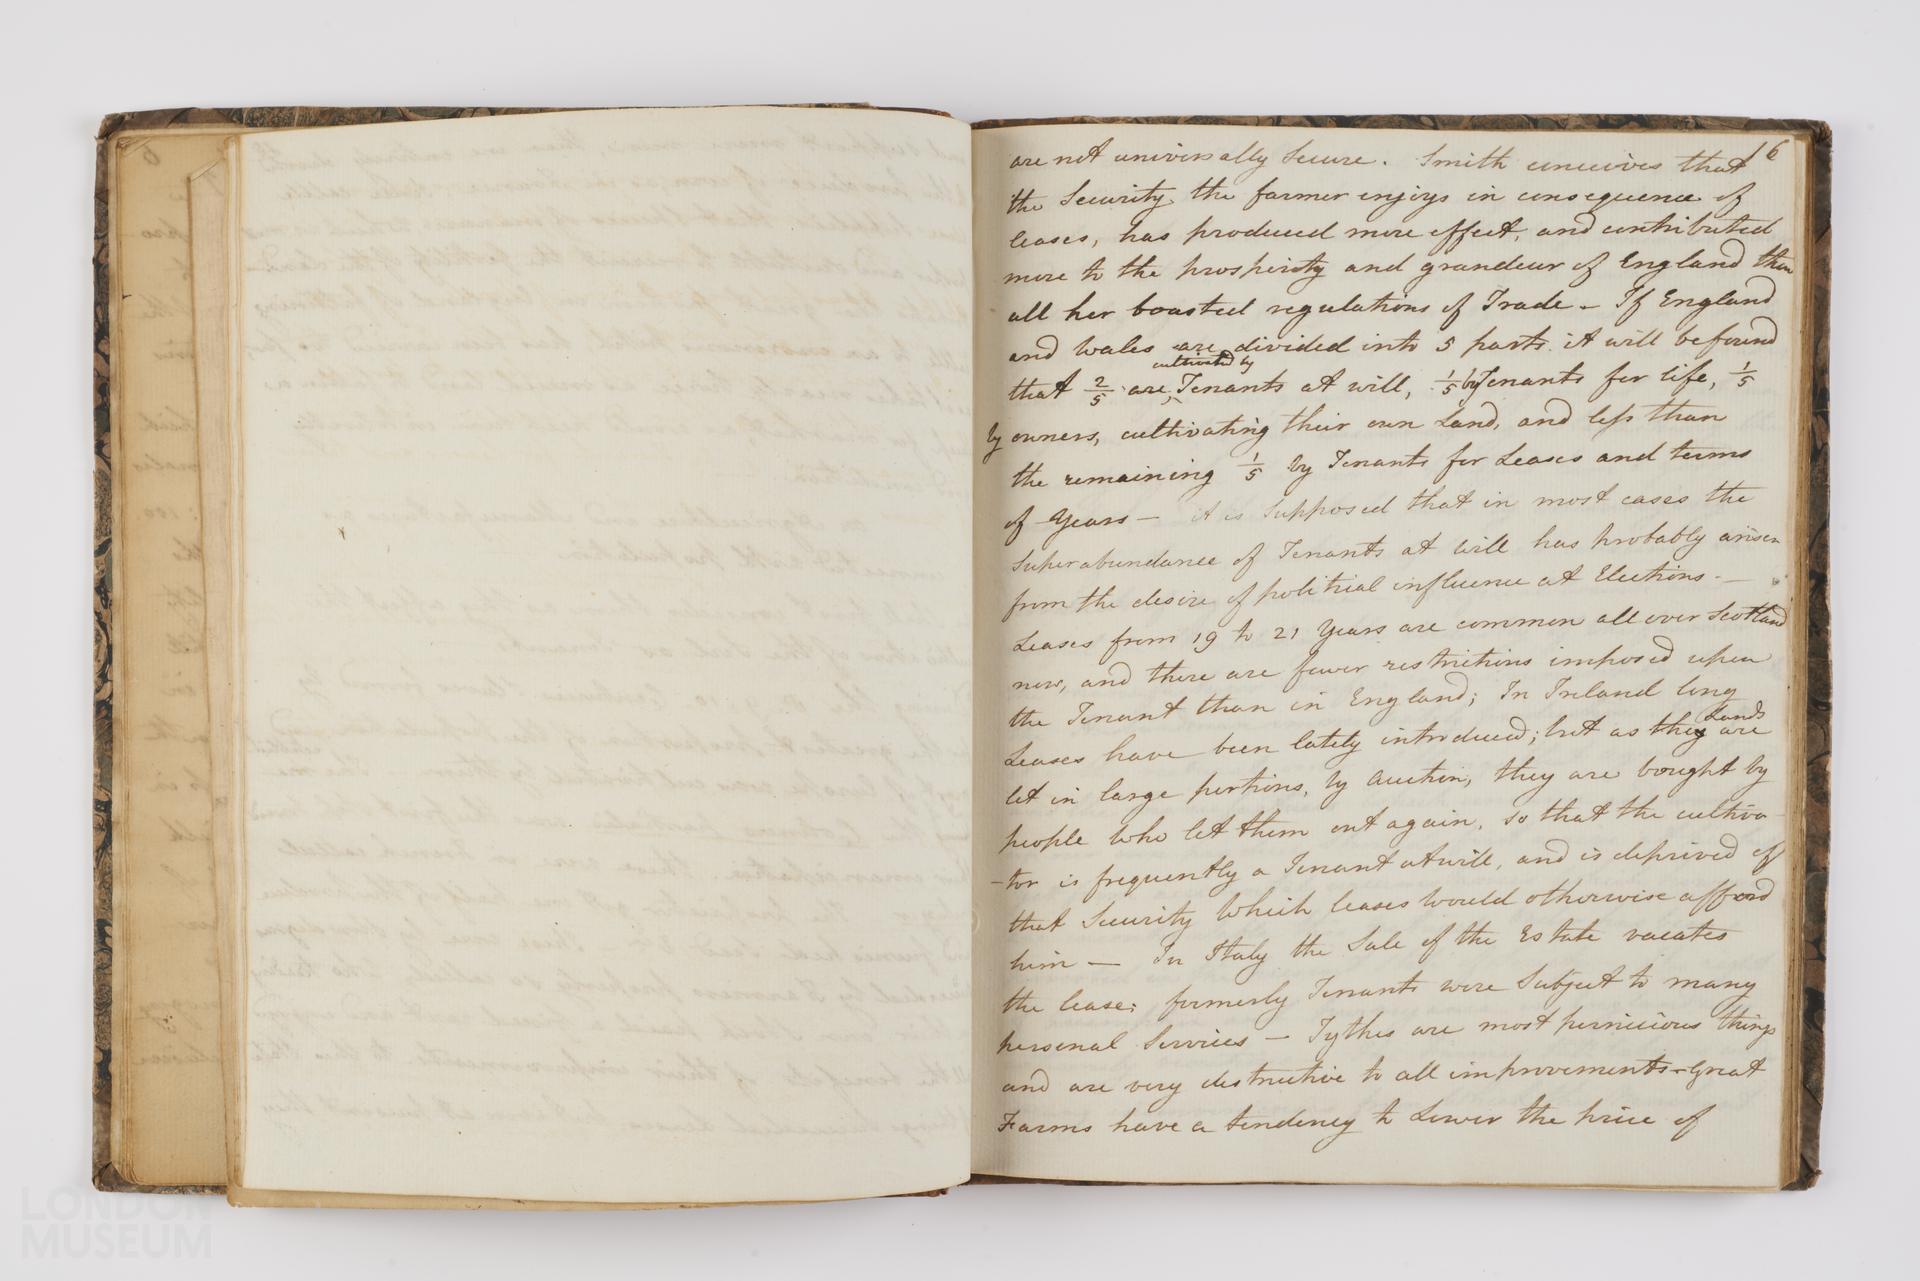 16
are not universally Secure. Smith conceives that
the Security the farmer enjoys in consequence of
leases, has produced more effect, and contributed
more to the prosperity and grandeur of England than
all her boasted regulations of Trade - If England
and Wales are divided into 5 parts it will be found
cultivated by
that 2/5 are Tenants at will, 1/5 by Tenants for life, 1/5
by owners, cultivating their own Land, and less than
the remaining 1/5 by Tenants for Leases and terms
of Years - it is Supposed that in most cases the
Superabundance of Tenants at Will has probably arisen
from the desire of political influence at Elections. -
Leases from 19 to 21 Years are common all over Scotland
now, and there are fewer restrictions imposed upon
the Tenant than in England; In Ireland long
Lands
Leases have been lately introduced; but as they are
let in large portions, by Auction, they are bought by
people who let them out again, so that the cultiva-
-tor is frequently a Tenant at will, and is deprived of
that Security Which leases would otherwise afford
him - In Italy the Sale of the Estate vacates
the lease; formerly Tenants were Subject to many
personal Services - Tythes are most pernicious things
and are very destructive to all improvements - Great
Farms have a tendency to Lower the price of
LONDON
MUSEUM